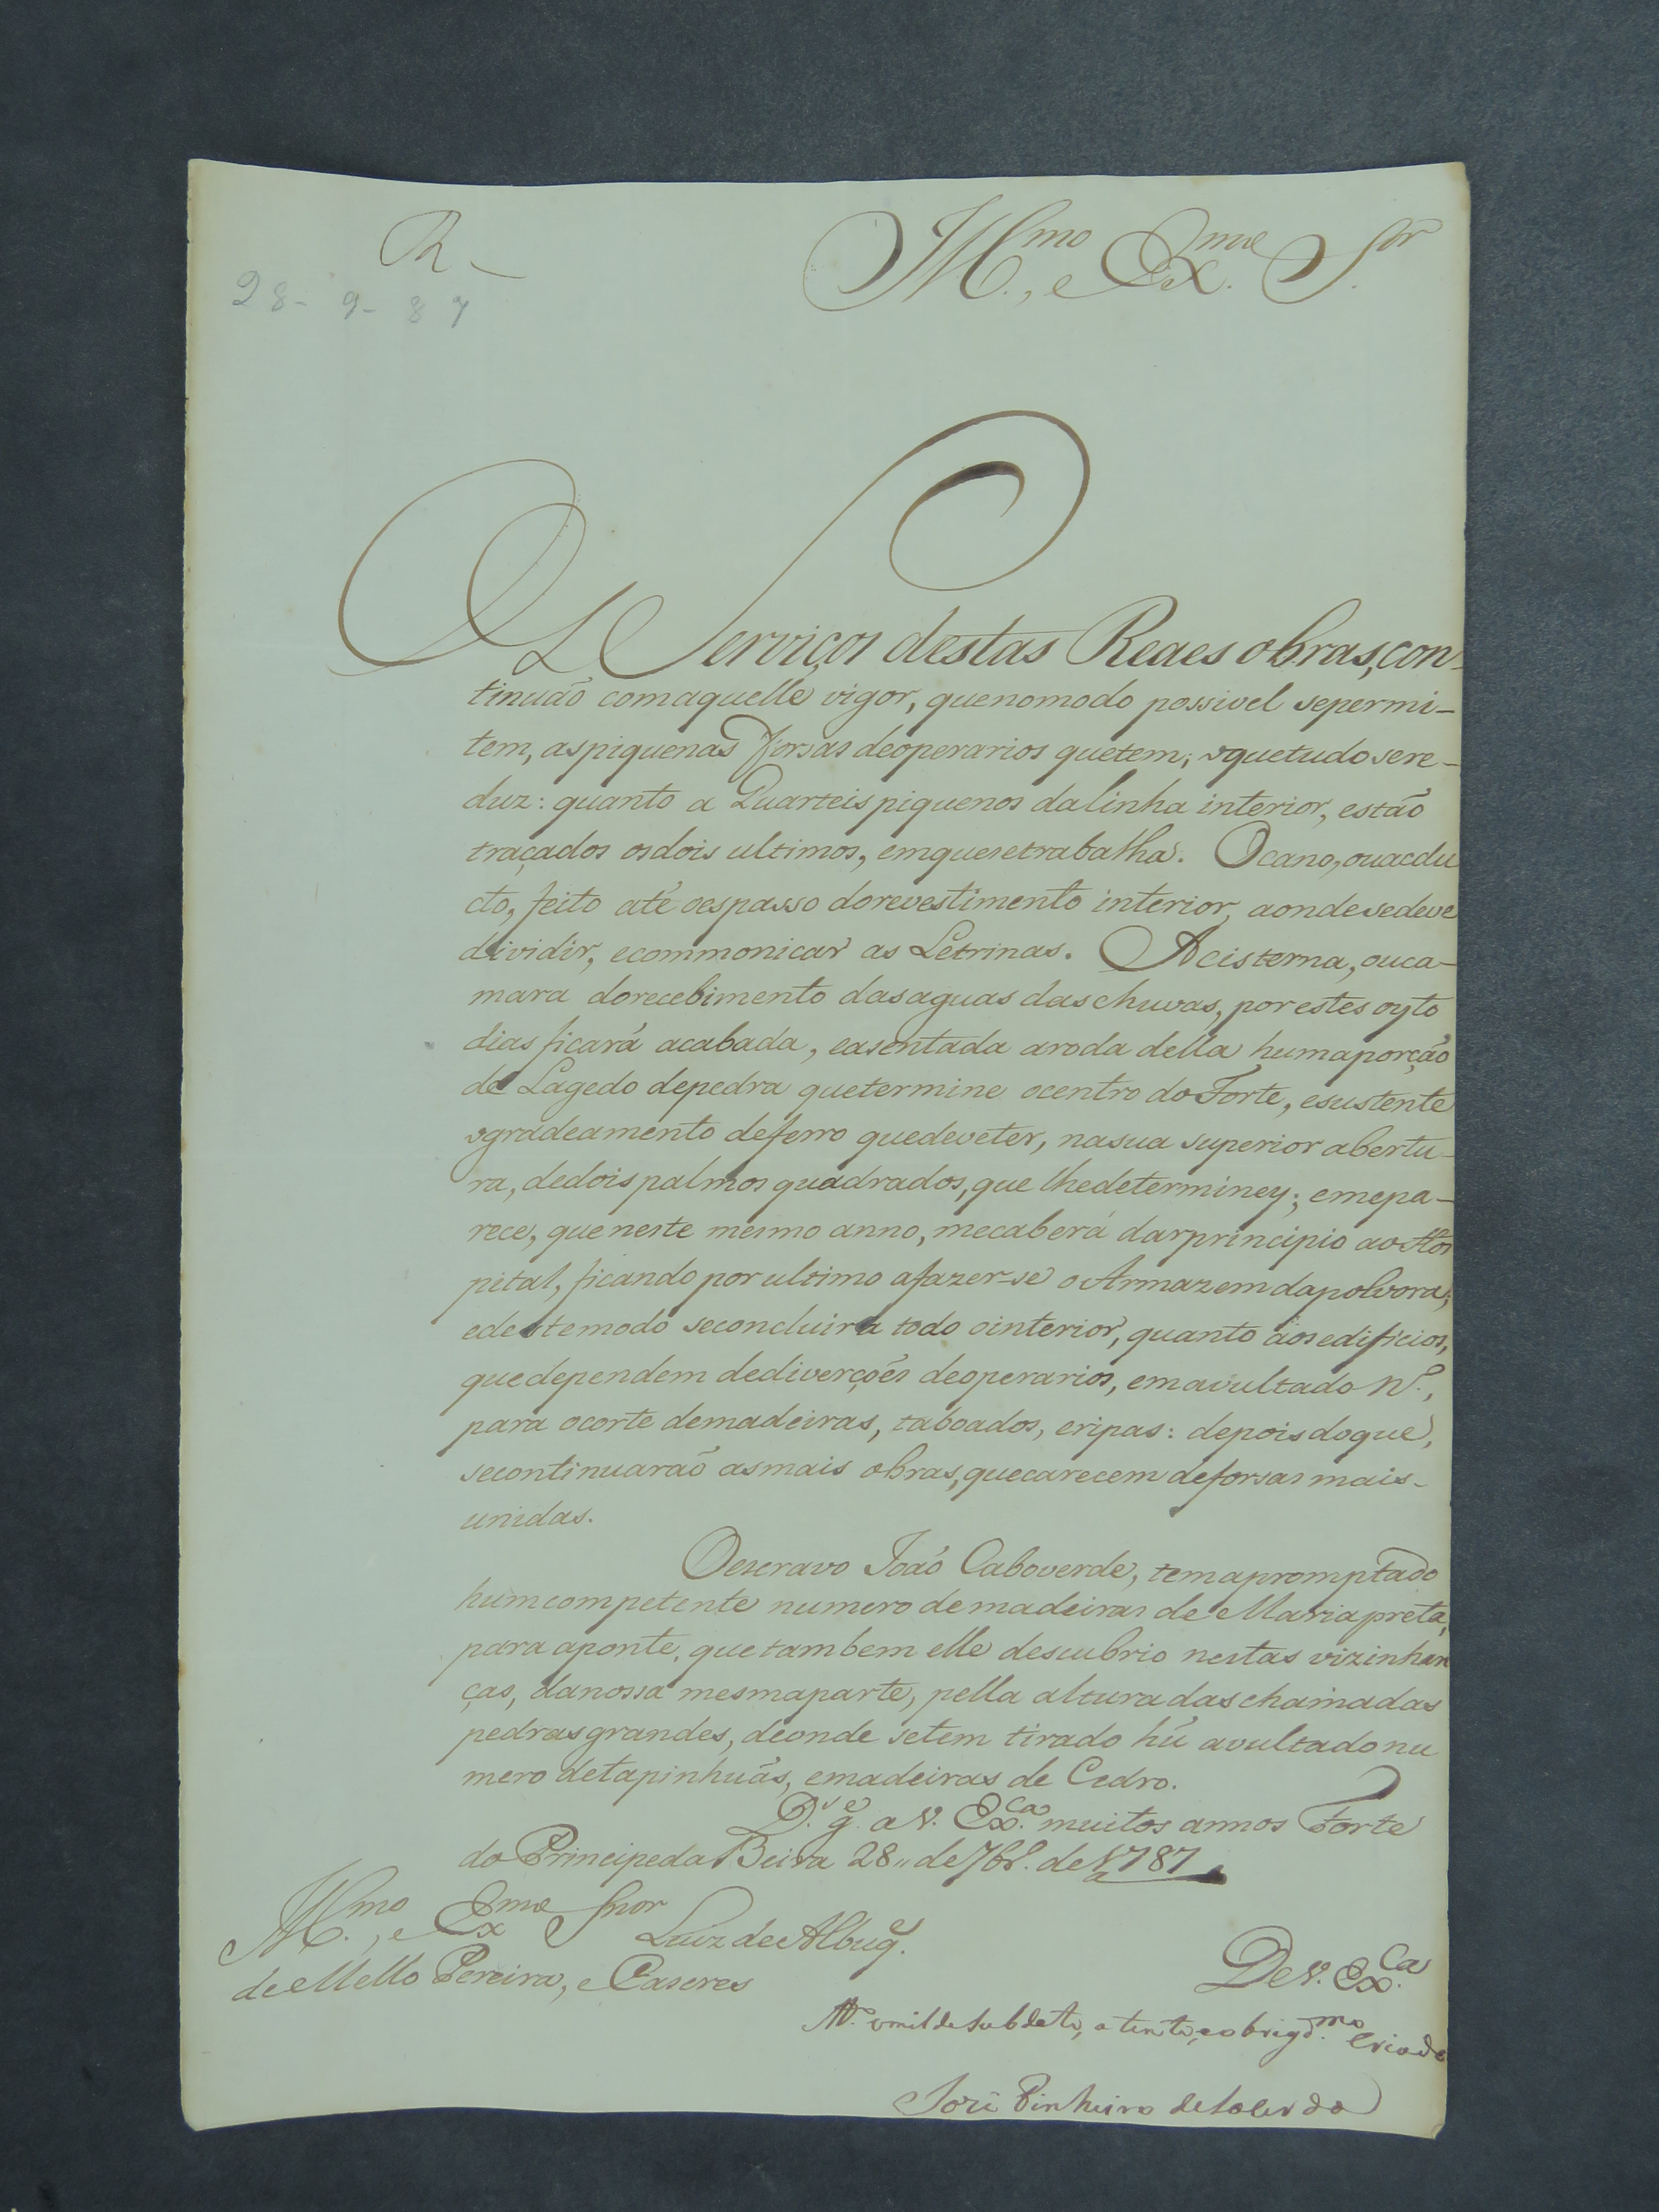 R
28-9-87
Ill.mo, e Ex.mo S.or
Os Serviços destas Reaes obras, con-
tinuão comaquelle vigor, quenomodo possivel sepermi-
tem, aspiquenas forsas deoperarios quetem; oquetudosere-
duz: quanto a Quarteis piquenos dalinha interior, estão
traçados osdois ultimos, emquesetrabalha. Ocano, ouacdu
cto, feito até oespasso dorevestimento interior, aondesedeve
dividir, ecommonicar as Letrinas. Acisterna, ouca-
mara dorecebimento dasaguas daschuvas, porestes oyto
dias ficará acabada, easentada aroda della humaporção
de Lagedo depedra quetermine ocentro do Forte, esustente
ogradeamento deferro quedeveter, nasua superior abertu-
ra, dedois palmos quadrados, que lhedeterminey; emepa-
rece, que neste mesmo anno, mecaberá darprincipio ao Hos
pital, ficando por ultimo afazer-se o Armazem dapolvora;
edestemodo seconcluira todo ointerior, quanto aosedificios,
quedependem dediverções deoperarios, emavultado N.º,
para ocorte demadeiras, taboados, eripas: depois doque,
secontinuarão asmais obras, quecarecem deforsas mais-
unidas.
Oescravo João Caboverde, temapromptado
humcompetente numero demadeiras de Mariapreta,
para aponte, quetambem elle descubrio nestas vizinhan
ças, danossa mesmaparte, pella altura das chamadas
pedrasgrandes, deonde setem tirado hũ avultadonu
mero detapinhuãs, emadeiras de Cedro.
D.s g.e a V. Ex.ca muitos annos Forte
do Principeda Beira 28,, de 7br.º de 1787
Ill.mo, e Ex.mo Snor Luiz de Albuq.e
de Mello Pereira, e Caseres
De V. Ex.ca
M.to omilde subdeto, atento, eobrigd.mo Criado
José Pinheiro deLacerda